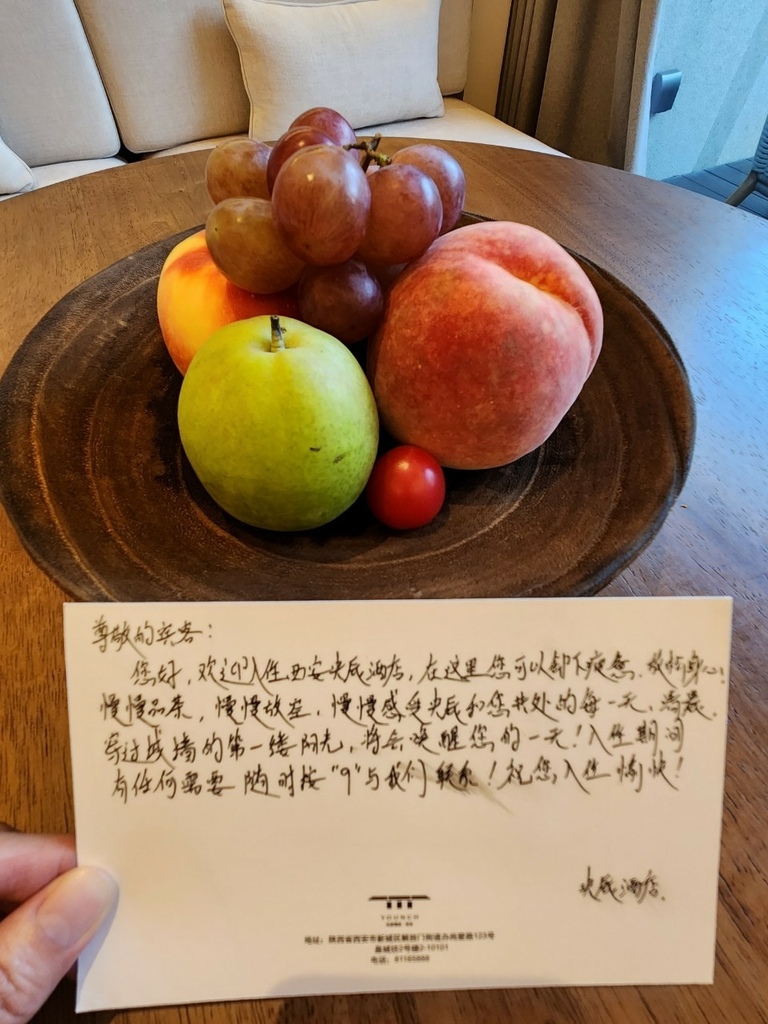 尊敬的宾客：
您好，欢迎入住西安央辰酒店，在这里您可以卸下疲惫、放松身心！
慢慢品茶，慢慢放空，慢慢感受央辰和您共处的每一天，清晨，
穿过城墙的第一缕阳光，将会唤醒您的一天！入住期间
有任何需要随时按“9”与我们联系！祝您入住愉快！
央辰酒店
YOUNCH
地址：陕西省西安市新城区解放门街道办尚爱路123号
电话：81165888